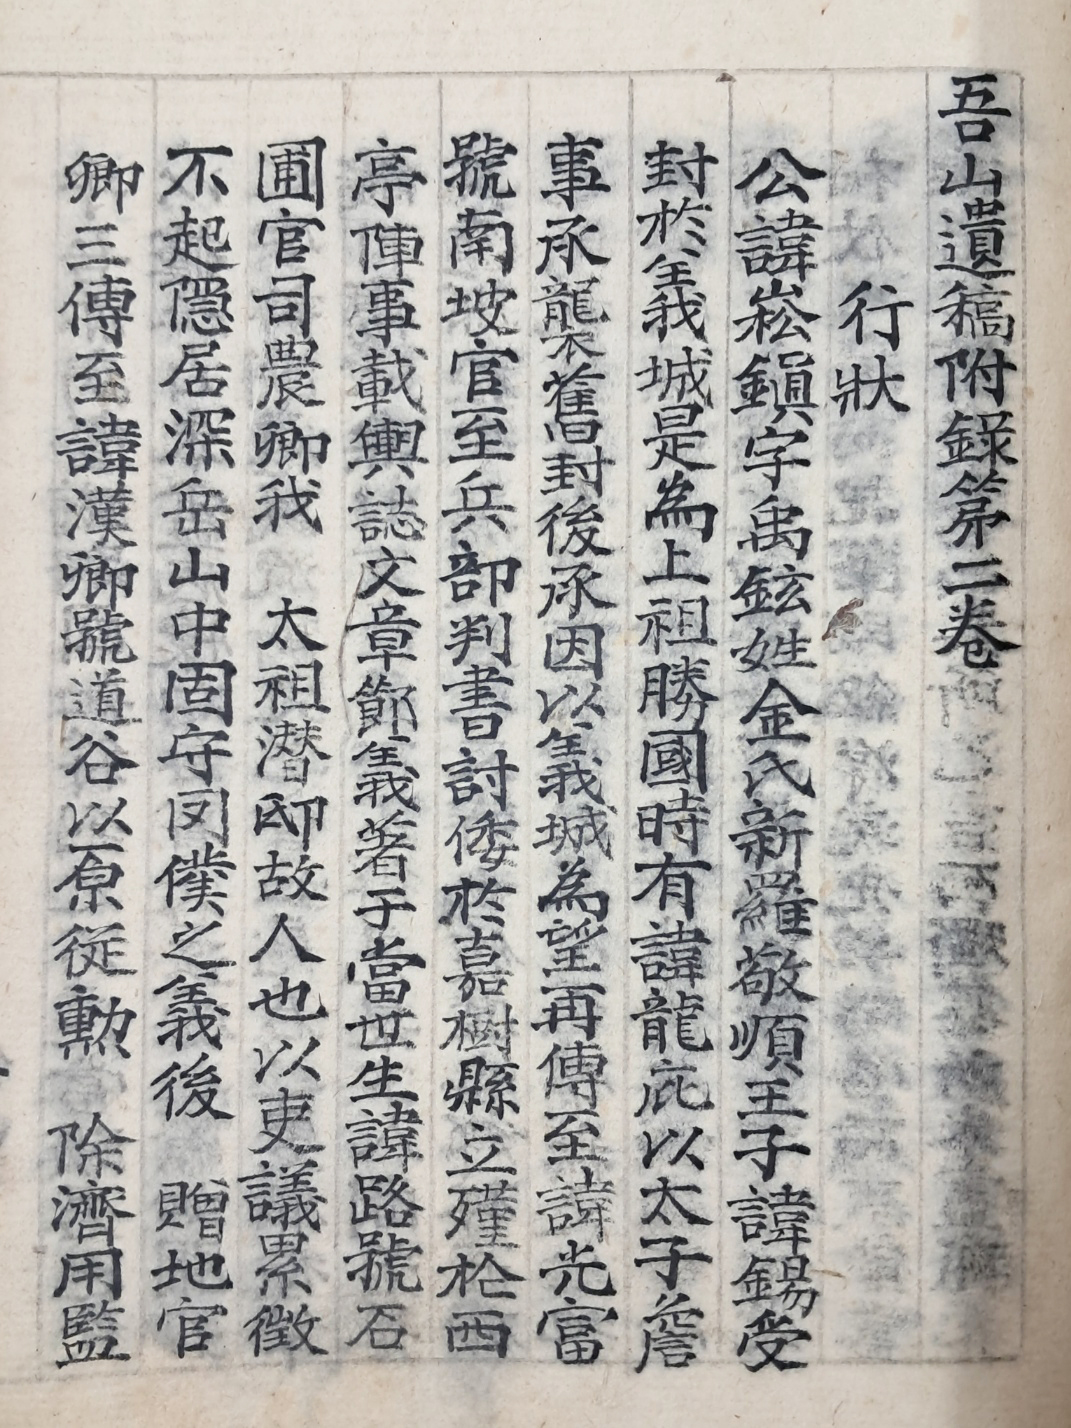 吾山遺稿附錄第二卷
行狀
公諱崧鎭字禹鉉姓金氏新羅敬順王子諱錫受
封於義城是為上祖勝國時有諱龍庇以太子詹
事承襲舊封後承因以義城為望再傳至諱光富
號南坡官至兵部判書討倭於嘉樹縣立殣枌西
亭陣事載輿誌文章節義著于當世生諱路號石
圃官司農卿我 太祖潛邸故人也以吏議累徵
不起隱居深岳山中固守罔僕之義後 贈地官
卿三傳至諱漢卿號道谷以原從勳 除濟用監